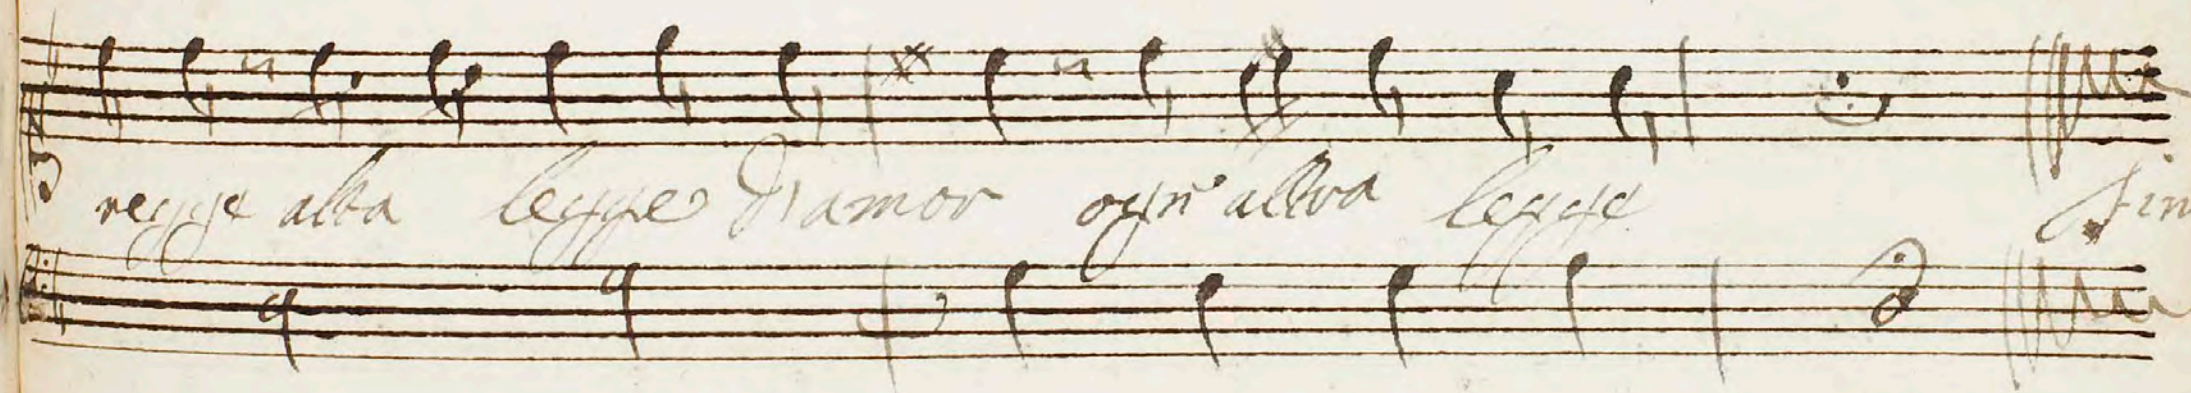 regge alta legge d'amor ogn' altra legge fin